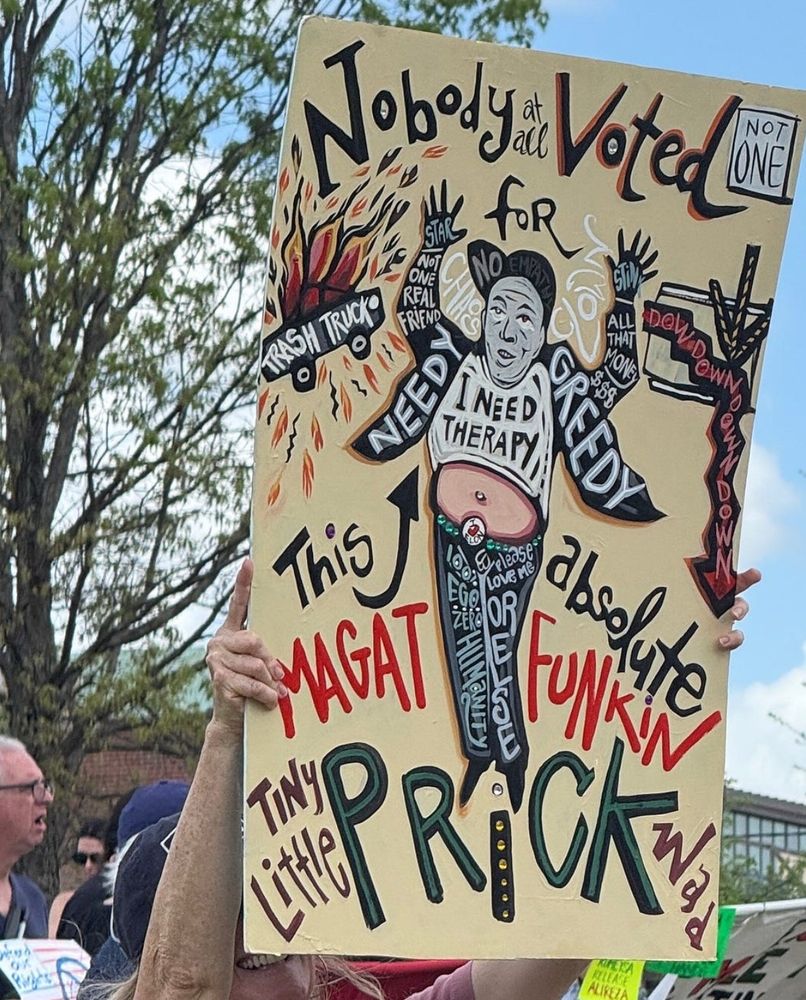 Nobody at all Voted NOT ONE
for
TRASH TRUCK
STAR
NOT ONE REAL FRIEND
CHAOS
NO EMPATHY
CLOWN
STINK
ALL THAT MONEY
$$$
DOW DOWN DOWN DOWN DOWN DOWN
NEEDY
I NEED THERAPY
GREEDY
This
absolute
MAGAT
FUNKIN
100% EGO ZERO HUMANITY
Please LOVE ME OR ELSE
TINY
Little
PRiCK
Wad
Defend
Our
Rights
RELEASE